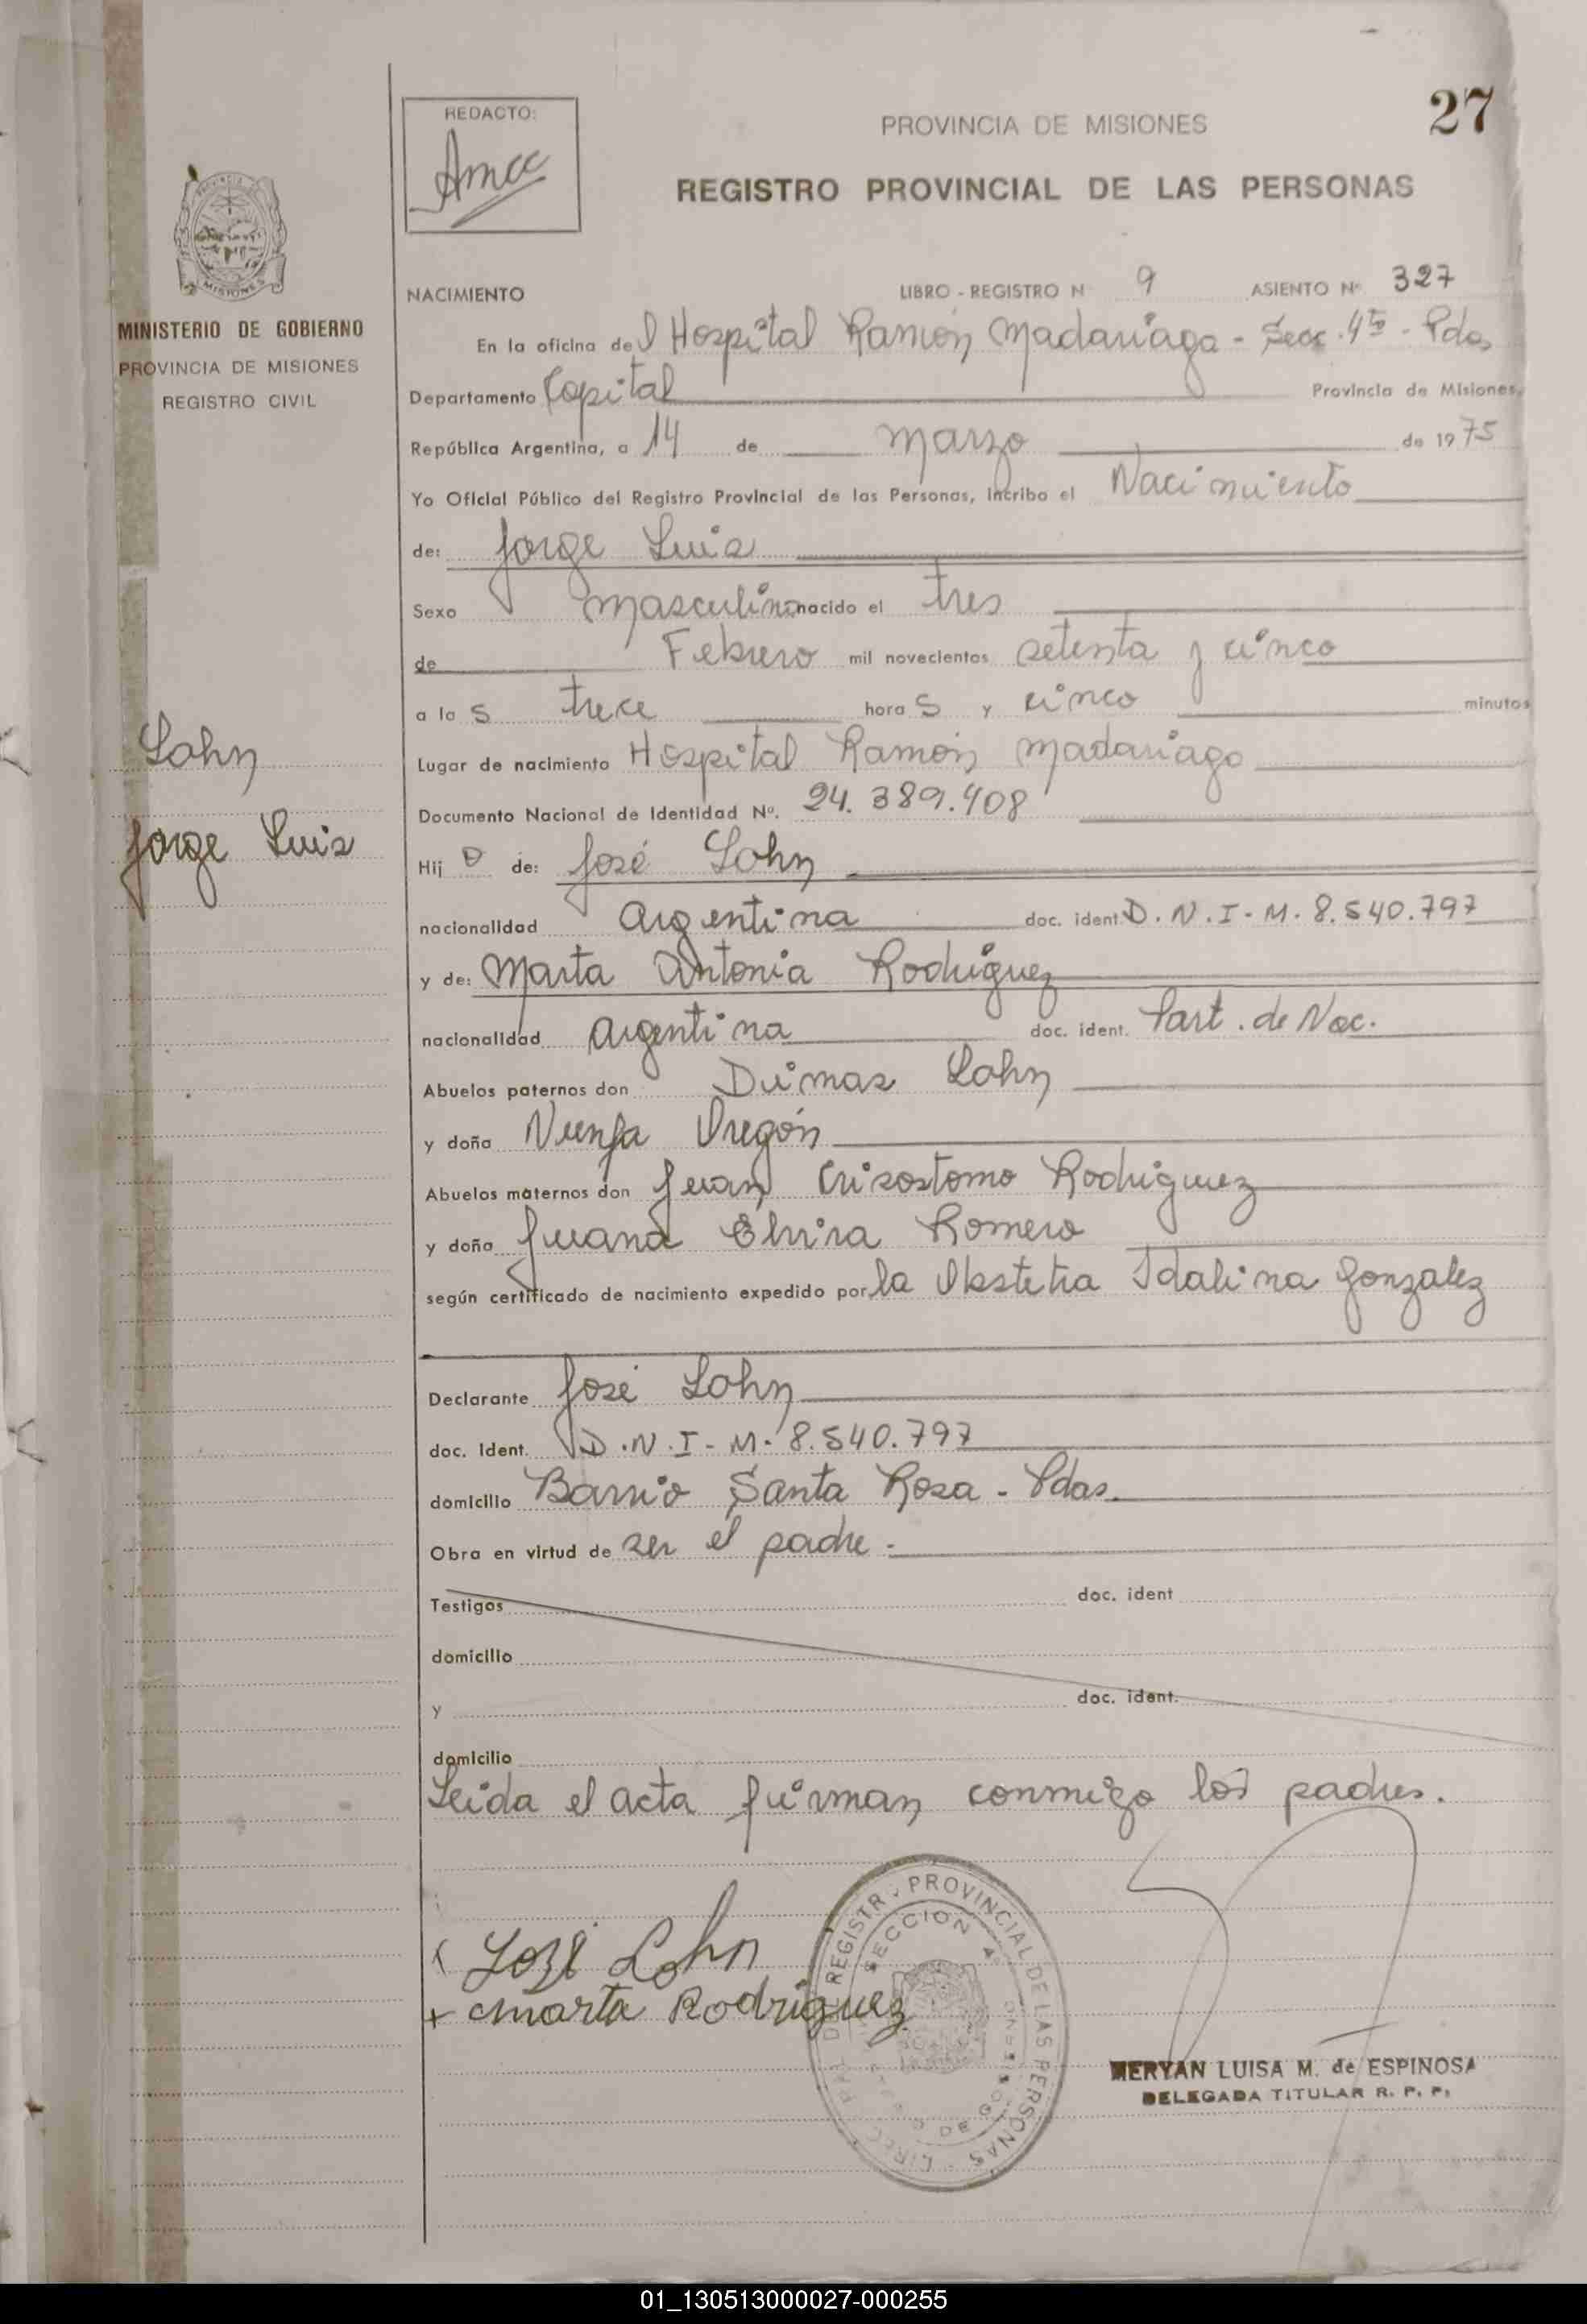 27
REDACTO:
PROVINCIA DE MISIONES
REGISTRO PROVINCIAL DE LAS PERSONAS
MINISTERIO DE GOBIERNO
PROVINCIA DE MISIONES
REGISTRO CIVIL
NACIMIENTO LIBRO - REGISTRO N 9 ASIENTO Nº. 327
En la oficina del Hospital Ramón Madariaga - Secc. 4ta - Pdas
Departamento Capital Provincia de Misiones,
República Argentina, a 14 de marzo de 1975
Yo Oficial Público del Registro Provincial de las Personas, incribo el Nacimiento
de: Jorge Luis
Sexo masculino nacido el tres
de Febrero mil novecientos setenta y cinco
a las trece horas y cinco minutos
Lohn
Lugar de nacimiento Hospital Ramón Madariaga
Jorge Luis
Documento Nacional de Identidad Nº. 24.389.408
Hijo de: José Lohn
nacionalidad argentina doc. ident. D.N.I-M-8.540.797
y de: Marta Antonia Rodriguez
nacionalidad argentina doc. ident. Part. de Nac.
Abuelos paternos don Dimas Lohn
y doña Ninfa Oregón
Abuelos maternos don Juan Crisostomo Rodriguez
y doña Juana Elvira Romero
según certificado de nacimiento expedido por la Obstetra Idalina Gonzalez
Declarante José Lohn
doc. Ident. D.N.I-M-8.540.797
domicilio Barrio Santa Rosa - Pdas.
Obra en virtud de ser el padre.
Testigos doc. ident
domicilio
y doc. ident.
domicilio
Leida el acta firman conmigo los padres.
José Lohn
+ Marta Rodriguez
REGISTR. PROVINCIAL DE LAS PERSONAS
SECCION 4
MERYAN LUISA M. de ESPINOSA
DELEGADA TITULAR R. P. P.
01_130513000027-000255